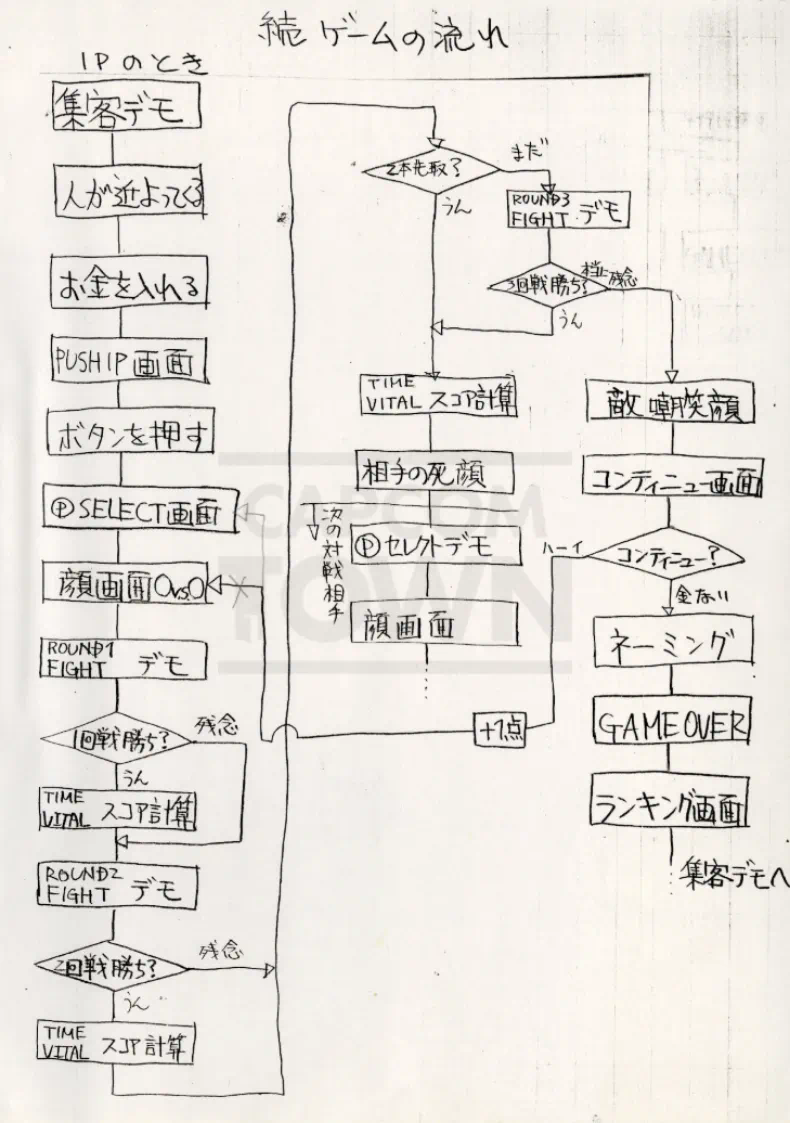 続 ゲームの流れ
1Pのとき
集客デモ
人が近よってくる
お金を入れる
PUSH1P画面
ボタンを押す
ⓅSELECT画面
顔画面 0vs.0
ROUND1
FIGHT デモ
1回戦勝ち?
残念
うん
TIME
VITAL スコア計算
ROUND2
FIGHT デモ
2回戦勝ち?
残念
うん
TIME
VITAL スコア計算
2本先取?
まだ
うん
ROUND3
FIGHT デモ
3回戦勝ち?
残念
うん
TIME
VITAL スコア計算
相手の死顔
次の対戦相手
Ⓟセレクトデモ
顔画面
敵 嘲笑顔
コンティニュー画面
コンティニュー?
ハーイ
金ない
+1点
ネーミング
GAMEOVER
ランキング画面
集客デモへ
CAPCOM
TOWN